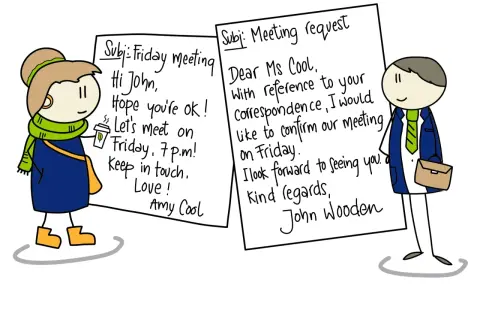 Subj: Friday meeting
Hi John,
Hope you're OK!
Let's meet on
Friday, 7 p.m!
Keep in touch.
Love!
Amy Cool
Subj: Meeting request
Dear Ms Cool,
With reference to your
correspondence, I would
like to confirm our meeting
on Friday.
I look forward to seeing you.
Kind regards,
John Wooden